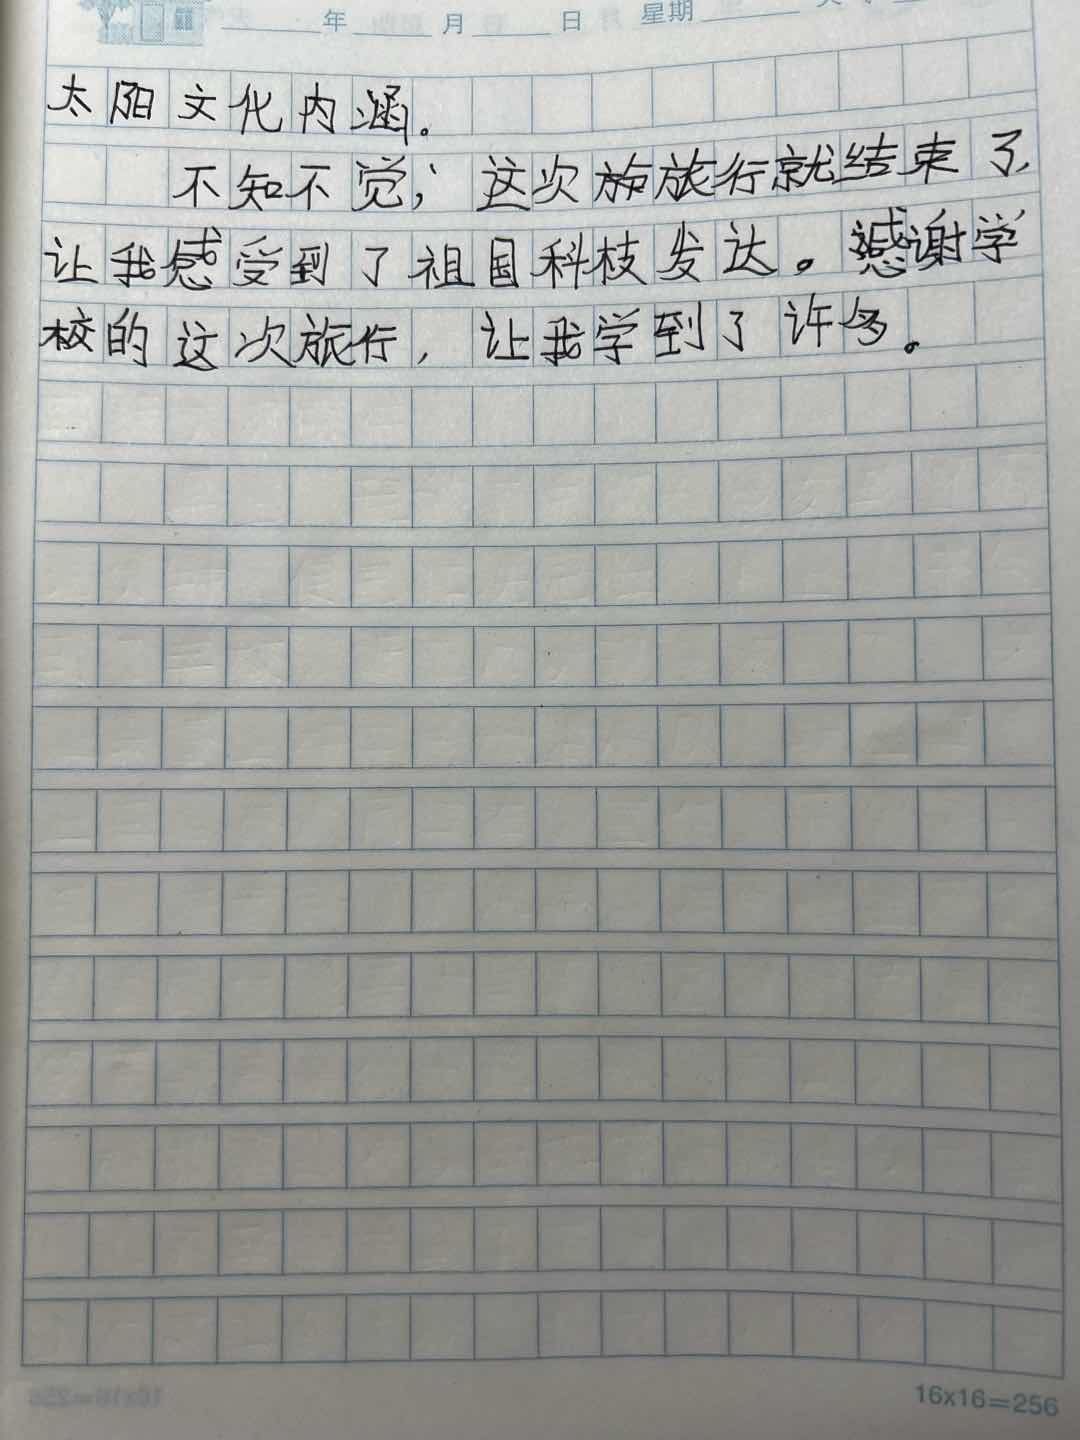 年 月 日 星期
太阳文化内涵。
不知不觉，这次旅旅行就结束了，
让我感受到了祖国科枝发达。感谢学
校的这次旅行，让我学到了许多。
16x16=256